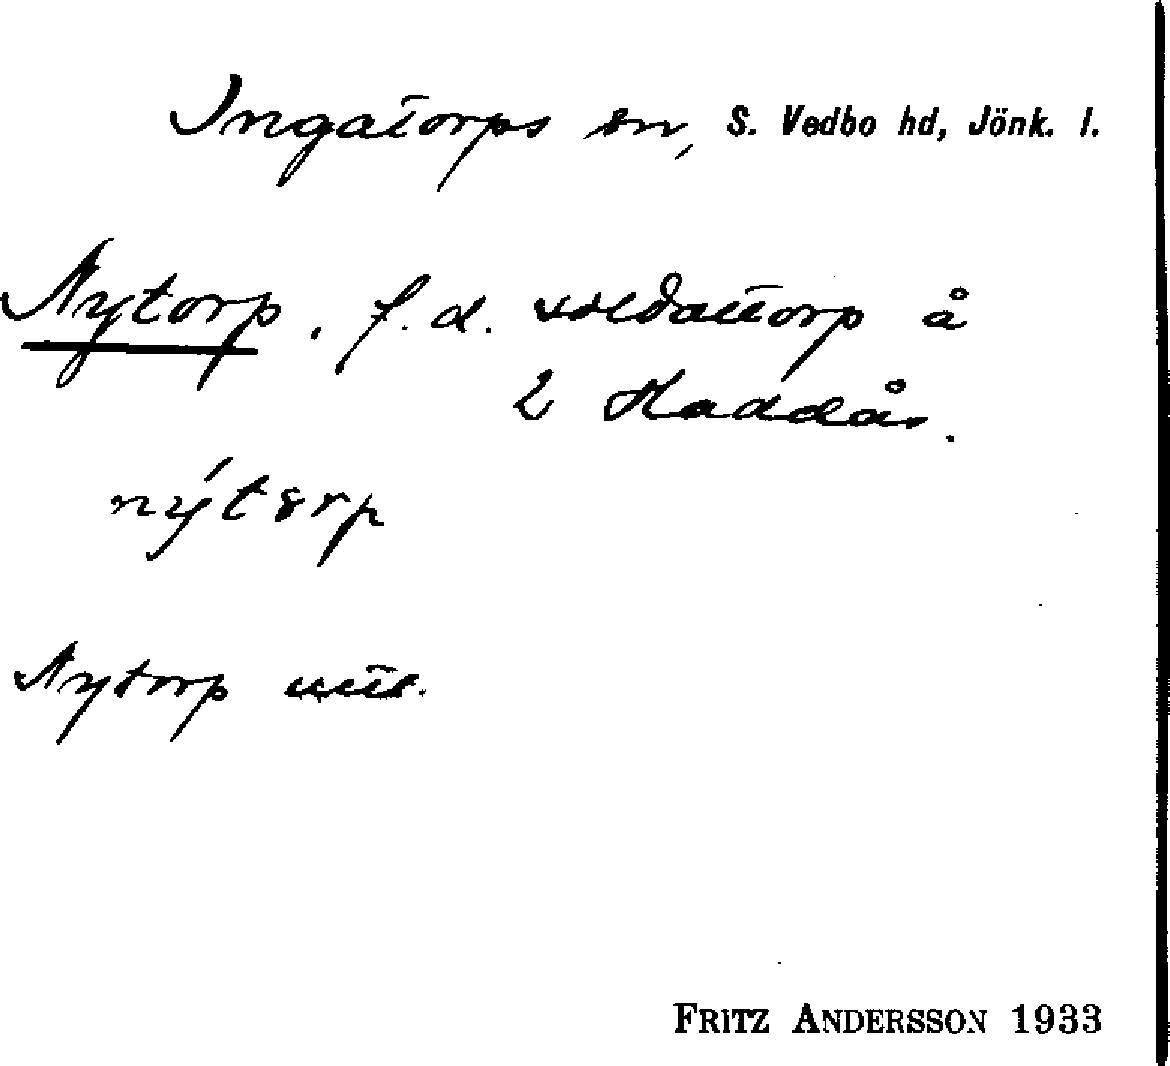 Ingatorps sn, S. Vedbo hd, Jönk. l.
Nytorp, f.d. soldattorp å
2 Haddås.
nýtərp
Nytorp uttt.
FRITZ ANDERSSON 1933